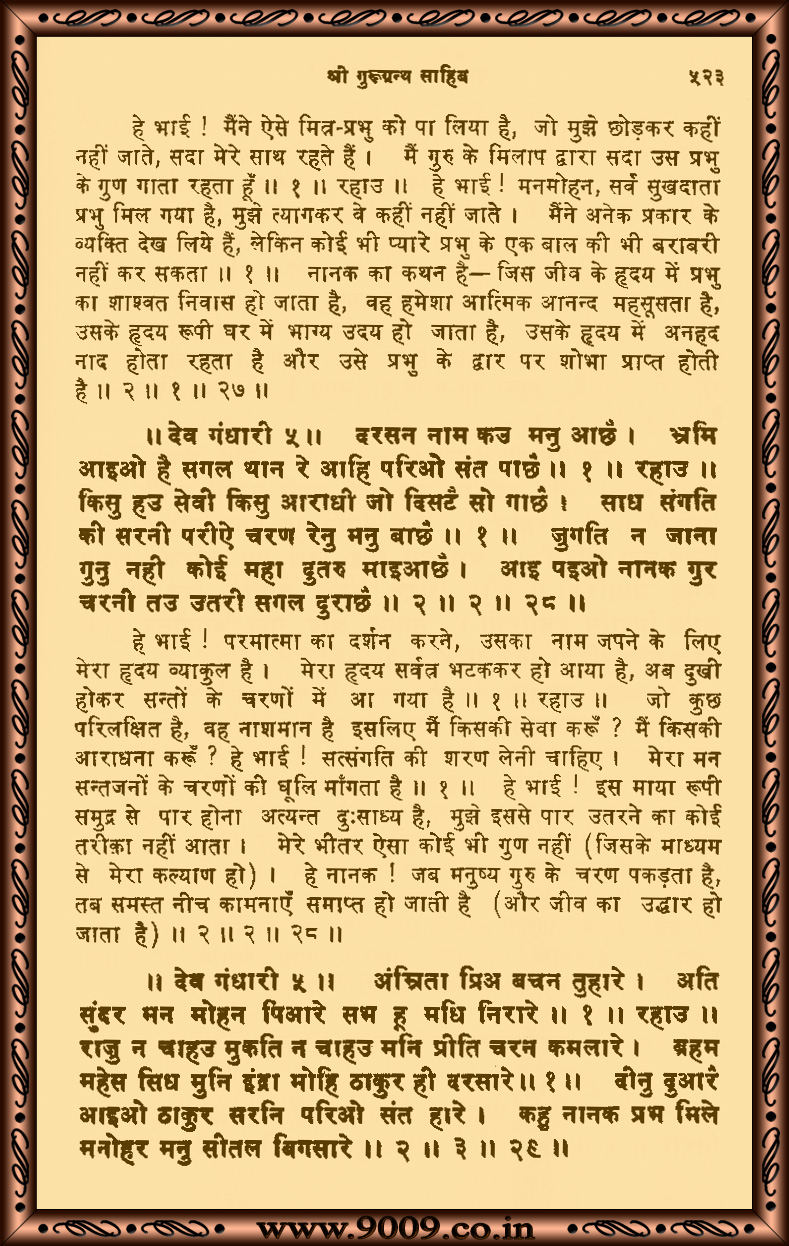 श्री गुरूग्रन्थ साहिब ५२३
हे भाई ! मैंने ऐसे मित्र-प्रभु को पा लिया है, जो मुझे छोड़कर कहीं
नहीं जाते, सदा मेरे साथ रहते हैं । मैं गुरु के मिलाप द्वारा सदा उस प्रभु
के गुण गाता रहता हूँ ॥ १ ॥ रहाउ ॥ हे भाई ! मनमोहन, सर्व सुखदाता
प्रभु मिल गया है, मुझे त्यागकर वे कहीं नहीं जाते । मैंने अनेक प्रकार के
व्यक्ति देख लिये हैं, लेकिन कोई भी प्यारे प्रभु के एक बाल की भी बराबरी
नहीं कर सकता ॥ १ ॥ नानक का कथन है— जिस जीव के हृदय में प्रभु
का शाश्वत निवास हो जाता है, वह हमेशा आत्मिक आनन्द महसूसता है,
उसके हृदय रूपी घर में भाग्य उदय हो जाता है, उसके हृदय में अनहद
नाद होता रहता है और उसे प्रभु के द्वार पर शोभा प्राप्त होती
है ॥ २ ॥ १ ॥ २७ ॥
॥ देव गंधारी ५ ॥ दरसन नाम कउ मनु आछै । भ्रमि
आइओ है सगल थान रे आहि परिओ संत पाछै ॥ १ ॥ रहाउ ॥
किसु हउ सेवी किसु आराधी जो दिसटै सो गाछै । साध संगति
की सरनी परीऐ चरण रेनु मनु बाछै ॥ १ ॥ जुगति न जाना
गुनु नही कोई महा दुतरु माइआछै । आइ पइओ नानक गुर
चरनी तउ उतरी सगल दुराछै ॥ २ ॥ २ ॥ २८ ॥
हे भाई ! परमात्मा का दर्शन करने, उसका नाम जपने के लिए
मेरा हृदय व्याकुल है । मेरा हृदय सर्वत्र भटककर हो आया है, अब दुखी
होकर सन्तों के चरणों में आ गया है ॥ १ ॥ रहाउ ॥ जो कुछ
परिलक्षित है, वह नाशमान है इसलिए मैं किसकी सेवा करूँ ? मैं किसकी
आराधना करूँ ? हे भाई ! सत्संगति की शरण लेनी चाहिए । मेरा मन
सन्तजनों के चरणों की धूलि माँगता है ॥ १ ॥ हे भाई ! इस माया रूपी
समुद्र से पार होना अत्यन्त दुःसाध्य है, मुझे इससे पार उतरने का कोई
तरीक़ा नहीं आता । मेरे भीतर ऐसा कोई भी गुण नहीं (जिसके माध्यम
से मेरा कल्याण हो) । हे नानक ! जब मनुष्य गुरु के चरण पकड़ता है,
तब समस्त नीच कामनाएँ समाप्त हो जाती है (और जीव का उद्धार हो
जाता है) ॥ २ ॥ २ ॥ २८ ॥
॥ देव गंधारी ५ ॥ अंम्रिता प्रिअ बचन तुहारे । अति
सुंदर मन मोहन पिआरे सभ हू मधि निरारे ॥ १ ॥ रहाउ ॥
राजु न चाहउ मुकति न चाहउ मनि प्रीति चरन कमलारे । ब्रहम
महेस सिध मुनि इंद्रा मोहि ठाकुर ही दरसारे ॥ १ ॥ दीनु दुआरै
आइओ ठाकुर सरनि परिओ संत हारे । कहु नानक प्रभ मिले
मनोहर मनु सीतल बिगसारे ॥ २ ॥ ३ ॥ २९ ॥
www.9009.co.in